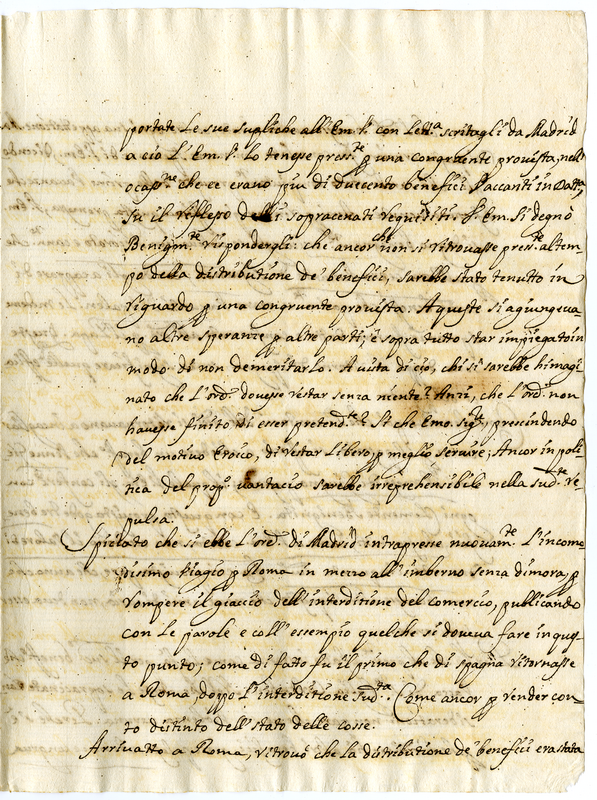 portate le sue supliche all'Em. S. con lett.a scritagli da Madrid
a ciò l'Em. S. lo tenesse press.te p una congruente provista, nell'
ocass.ne che ce erano più di duecento benefici vaccanti in Datta.
Su il riflesso delli sopracenati requisiti. S. Em. si degnò
Benigm.te rispondergli: che ancor che non si ritrovasse press.te al tem-
po della distributione de' benefici, sarebbe stato tenutto in
riguardo p una congruente provista. A queste si agiungeva
no altre speranze p altre parti, e sopra tutto star impiegato in
modo di non demeritarlo. A vista di ciò, chi si sarebbe himagi
nato che l'ord. dovesse restar senza niente? Anzi, che l'ord. non
havesse finito di esser pretend.te? Si che Emo. Sig.re, prescindendo
del motivo Eroico, di restar libero, p meglio servire; Ancor in poli
tica del prop. vantacio sarebbe irreprehensibile nella sud.te re-
pulsa.
Spiciato che si ebbe l'ord. di Madrid intrapresse nuovam.te l'incomo-
dissimo viagio p Roma in mezzo all'imberno senza dimora, p
rompere il giaccio dell'interditione del comercio, publicando
con le parole e coll'essempio quelche si doveva fare in ques-
to punto; come di fatto fu il primo che di spagna ritornasse
a Roma, doppo l'interditione sud.ta. Come ancor p render con-
to distinto dell'stato delle cosse.
Arrivatto a Roma, ritrovò che la distributione de' benefici era stata